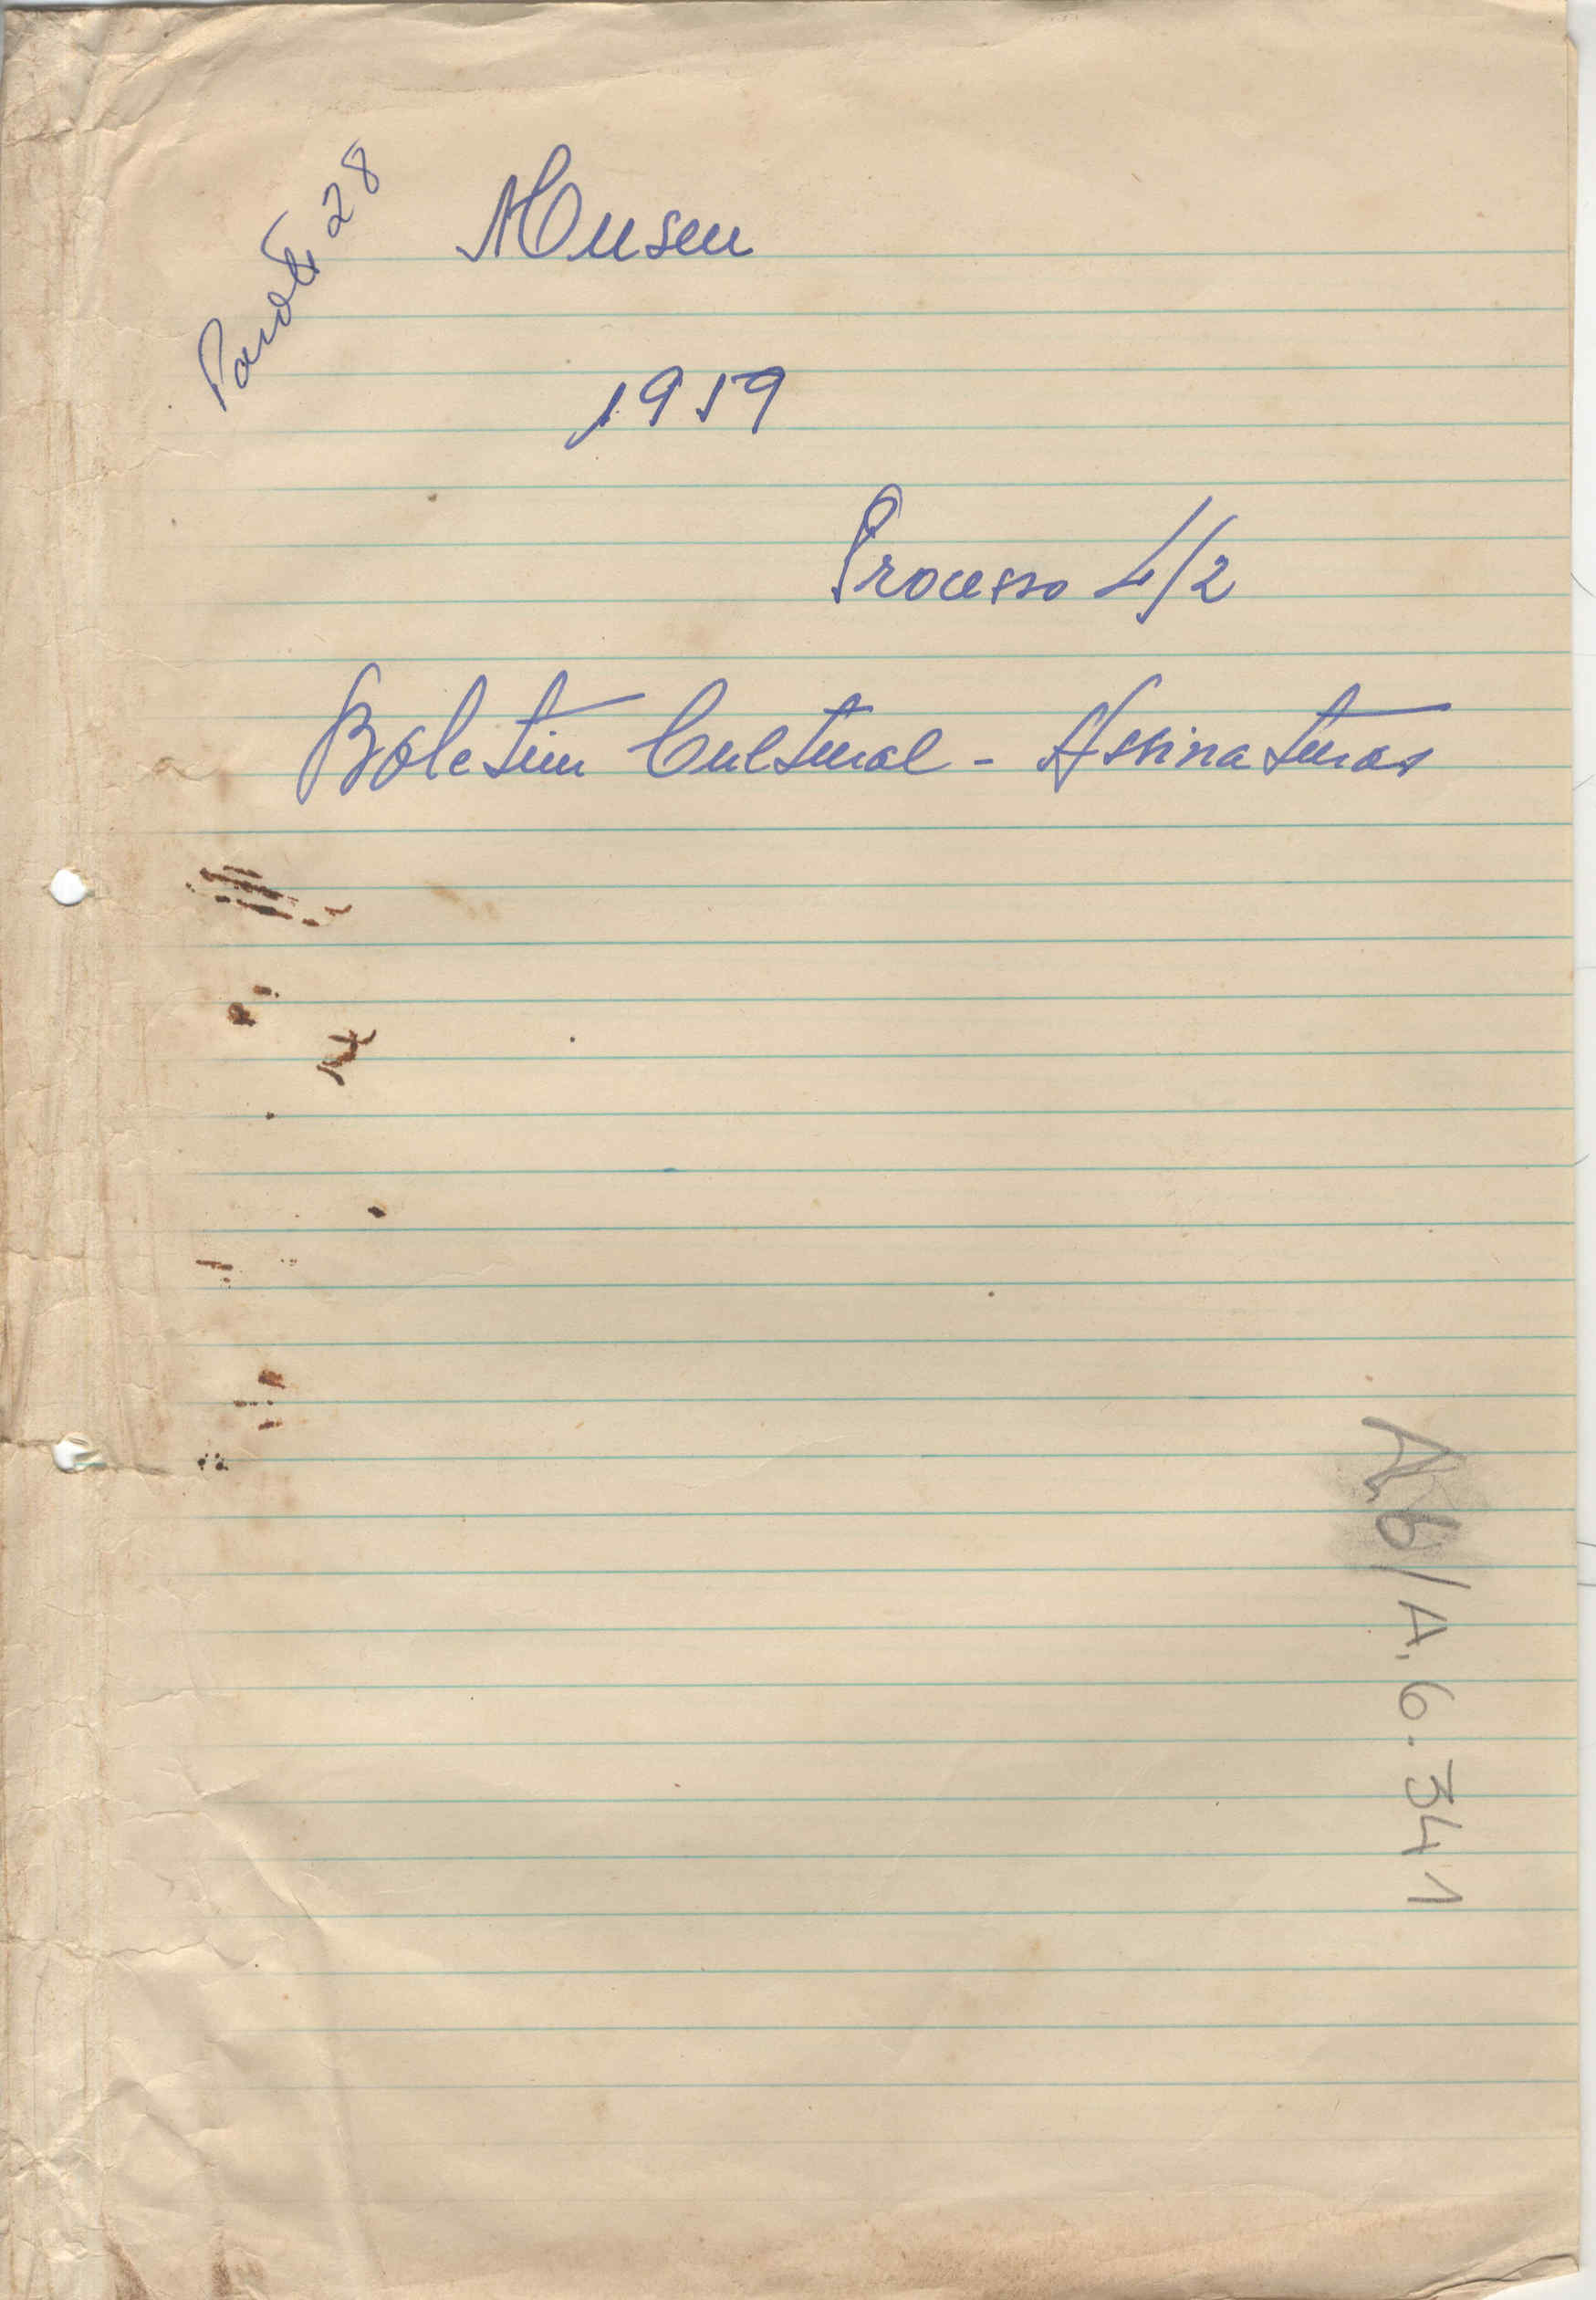 Pasta 28
Museu
1959
Processo 4/2
Boletim Cultural - Assinaturas
Ab/A.6.341